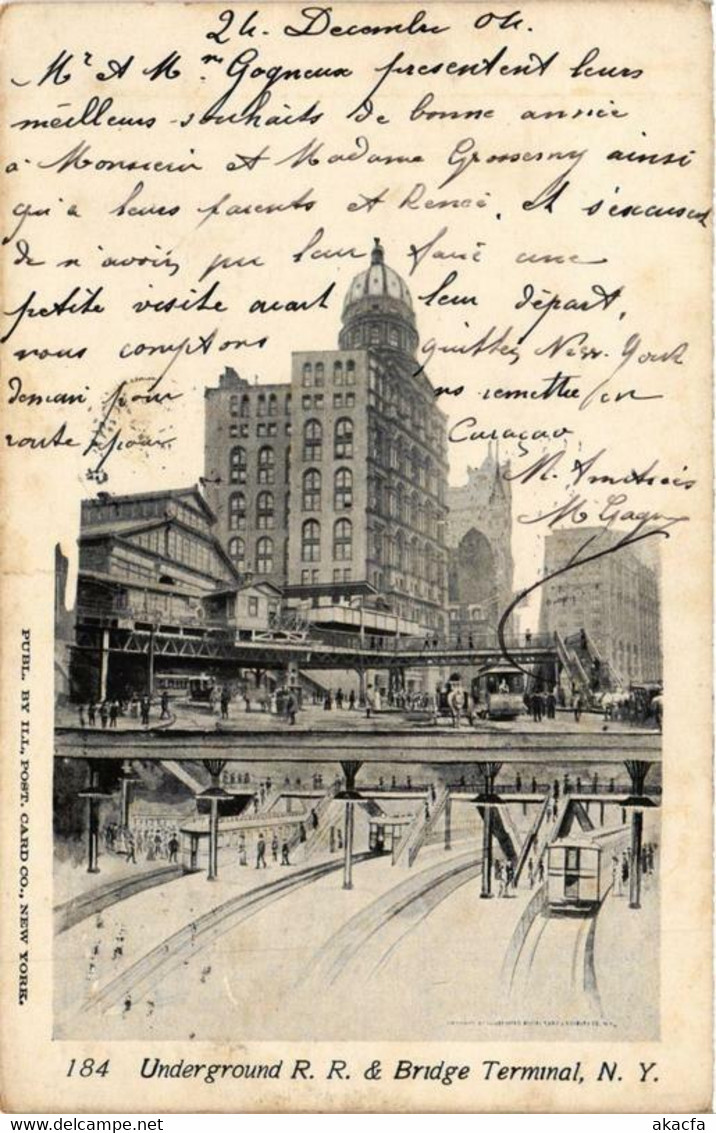 24 Decembre 04.
Mr et Mme Gogneux presentent leurs
meilleurs souhaits de bonne année
a Monsieur et Madame ainsi
qu'a leurs parents et Renée, et s'excusent
de n'avoir pu leur faire une
petite visite avant leur départ,
nous comptons quitter New-York
demain pour ns remettre en
route pour Curaçao
M.
M Gogn
PUBL. BY ILL. POST. CARD CO., NEW YORK.
184 Underground R. R. & Bridge Terminal, N. Y.
Delcampe.net
akacfa